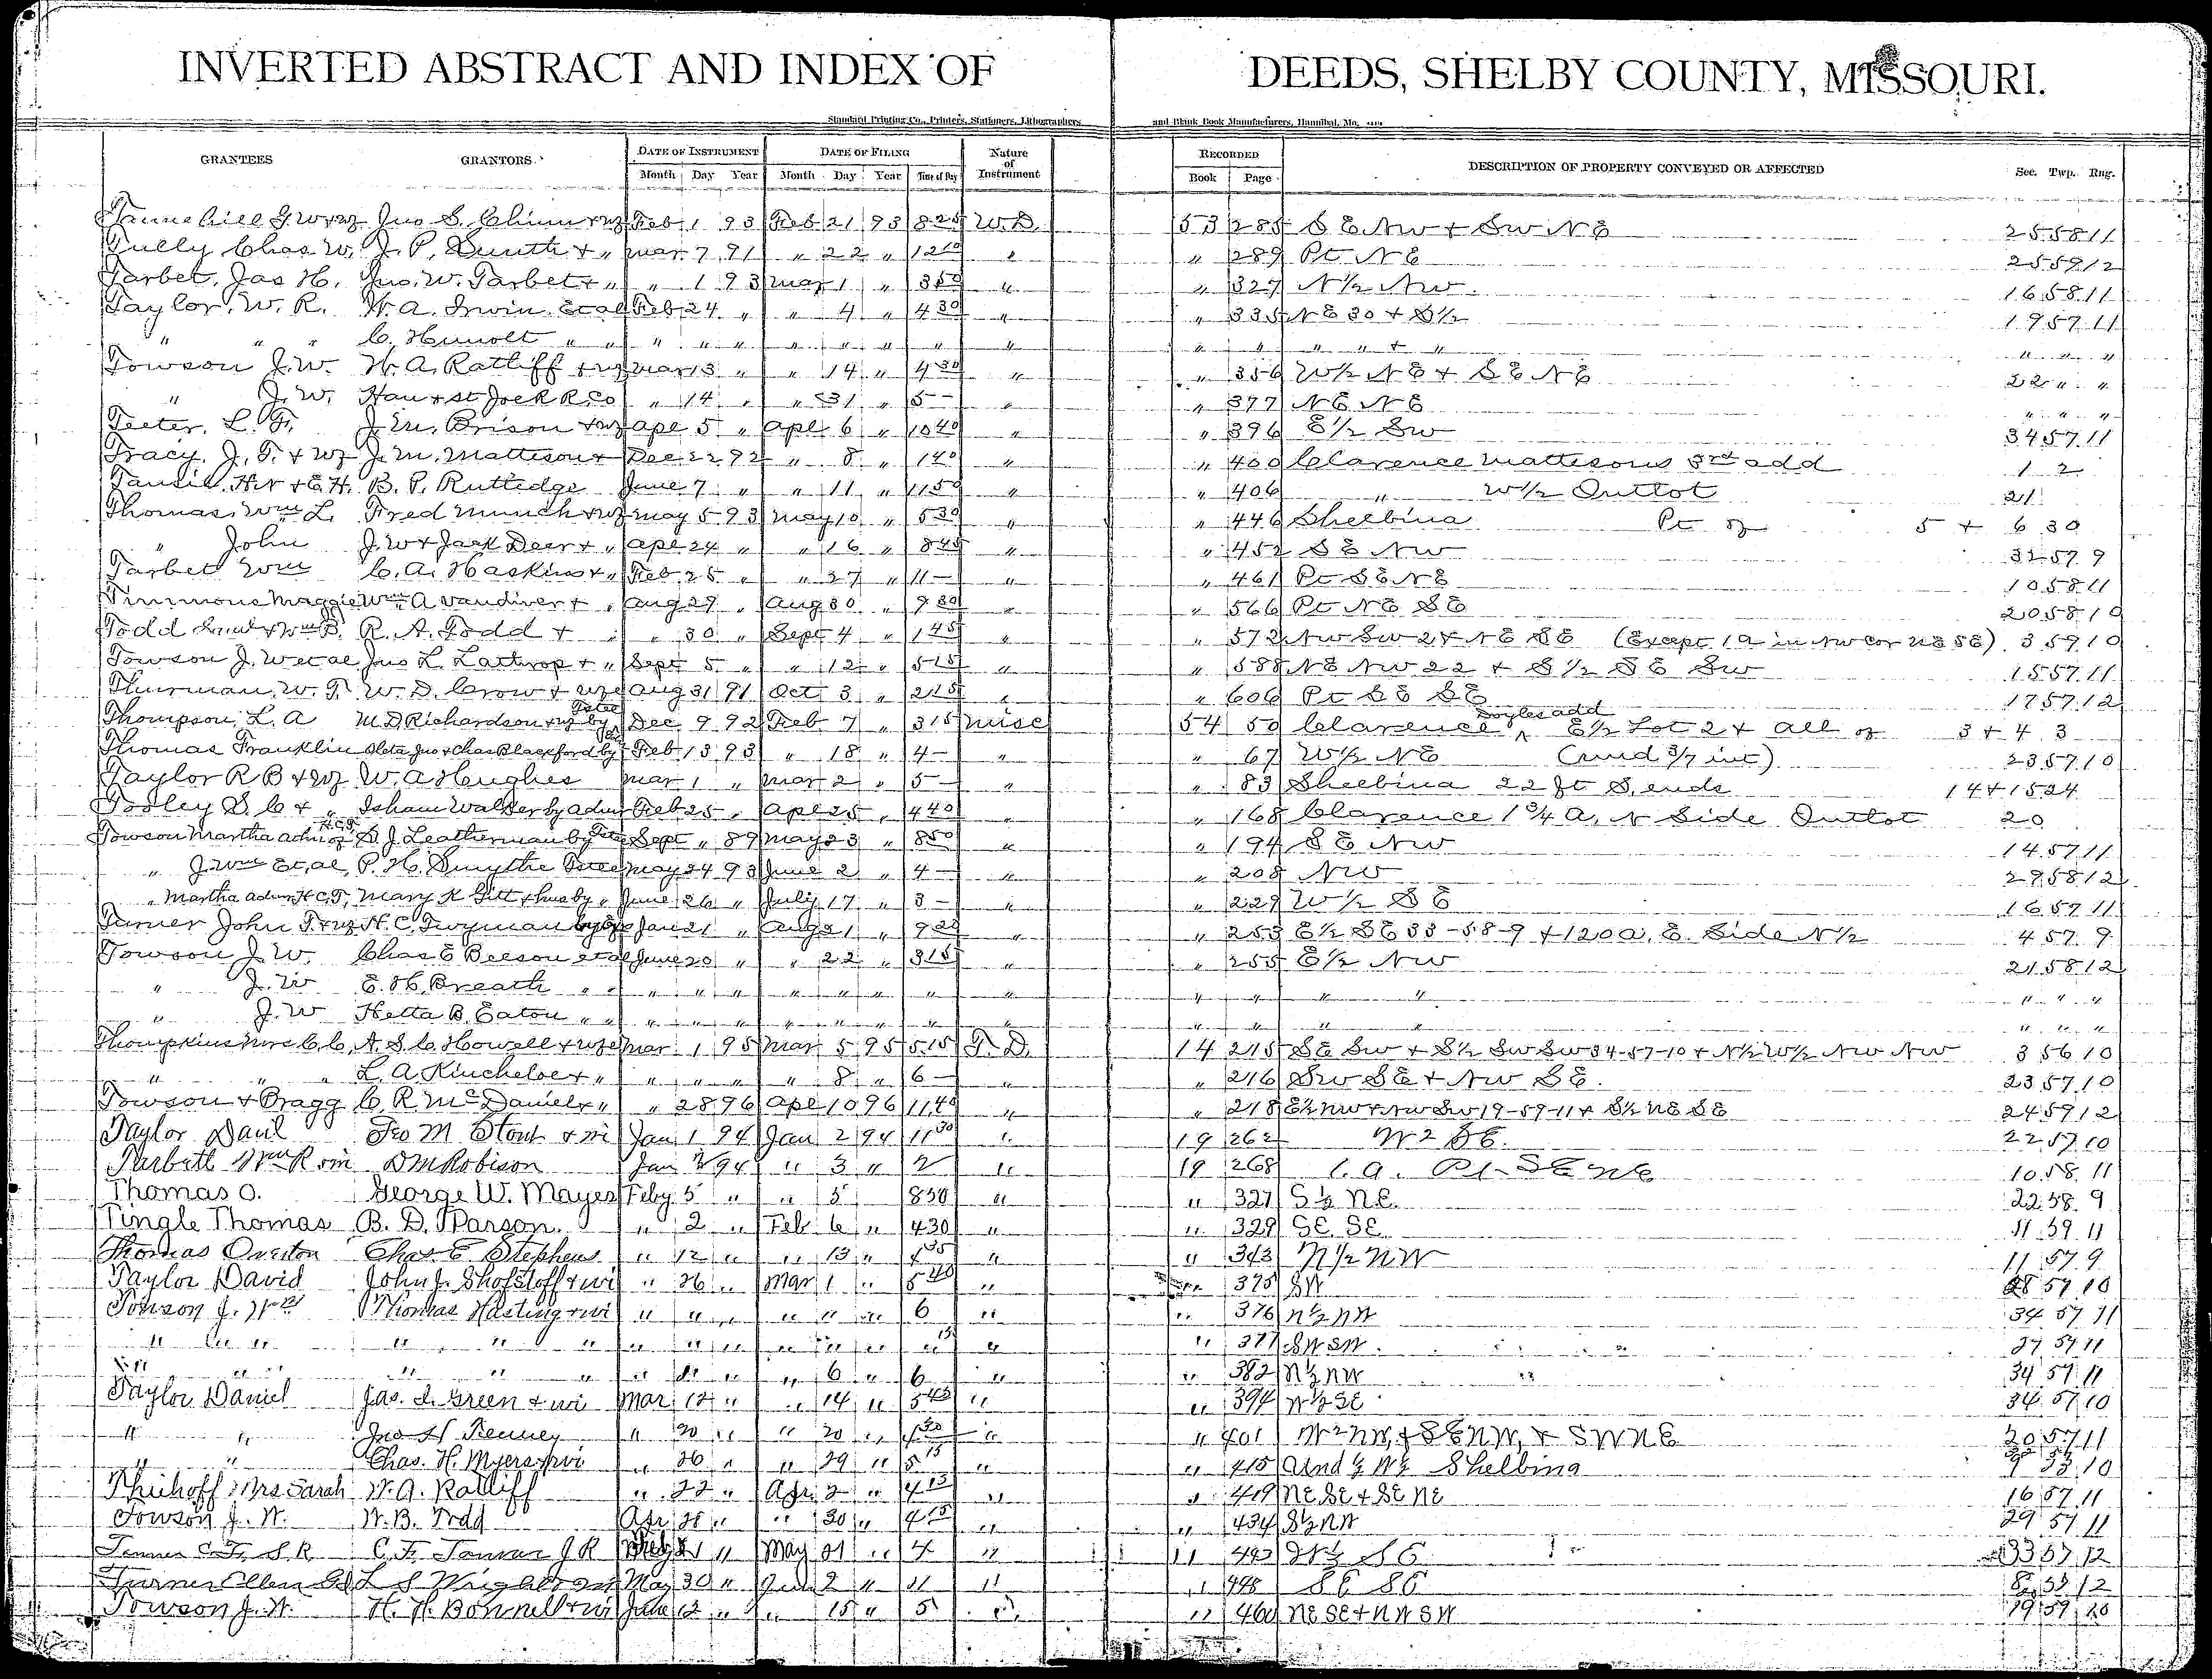 INVERTED ABSTRACT AND INDEX OF DEEDS, SHELBY COUNTY, MISSOURI.
Standard Printing Co., Printers, Stationers, Lithographers and Blank Book Manufacturers, Hannibal, Mo.
GRANTEES GRANTORS DATE OF INSTRUMENT DATE OF FILING Nature of Instrument RECORDED DESCRIPTION OF PROPERTY CONVEYED OR AFFECTED Sec. Twp. Rng.
Month Day Year Month Day Year Time of Day Book Page
Tannehill G W + wf Jno S. Chinn + wf Feb 1 93 Feb 21 93 8 25 W.D. 53 285 S E NW + SW NE 25 58 11
Tully Chas W. J. P. + " mar 7 91 " 22 " 12 10 " " 289 Pt NE 25 59 12
Tarbet, Jas H. Jno. W. Tarbet + " " 1 93 mar 1 " 3 50 " " 327 N½ NW 16 58 11
Taylor, W. R. W. A. Irwin et al Feb 24 " " 4 " 4 30 " " 335 NE 30 + S½ 19 57 11
" " " C. Hunolt " " " " " " " " " " " " " " + " " " "
Towson J. W. W. A. Ratliff + wf mar 13 " " 14 " 4 30 " " 356 W½ NE + SE NE 22 " "
" J. W. Han + St Joe R R Co " 14 " " 31 " 5 — " " 377 NE NE " " "
Teeter, L. F. J. M. Brison + wf apl 5 " apl 6 " 10 40 " " 396 E½ SW 34 57 11
Tracy, J. T. + wf J. M. Mattison + Dec 22 92 " 8 " 1 40 " " 400 Clarence Mattisons 3rd add 1 2
Tansil, H N + E. H. B. P. Rutledge June 7 " " 11 " 11 50 " " 406 " W½ Outlot 21
Thomas, Wm L. Fred Munch + wf may 5 93 may 10 " 5 30 " " 446 Shelbina Pt of 5 + 6 30
" John J. W + Jack Deer + " apl 24 " " 16 " 8 45 " " 452 SE NW 31 57 9
Tarbet Wm C. A. Haskins + " Feb 25 " " 27 " 11 — " " 461 Pt SE NE 10 58 11
Timmons Maggie Wm A Vandiver + " aug 29 " aug 30 " 9 30 " " 566 Pt NE SE 20 58 10
Todd + Wm B. R. A. Todd + " " 30 " Sept 4 " 1 45 " " 572 NW SW 2 + NE SE (Except 1 a in NW cor NE SE) 3 59 10
Towson J. W et al Jno L. Lathrop + " Sept 5 " " 12 " 5 15 " " 588 NE NW 22 + S½ SE SW 15 57 11
Thurman, W. T. W. D. Crow + wf aug 31 91 Oct 3 " 2 15 " " 606 Pt SE SE 17 57 12
Thompson, L. A M. D. Richardson + wf by Tstee Dec 9 92 Feb 7 " 3 15 misc 54 50 Clarence ^ Doyles add E½ Lot 2 + all of 3 + 4 3
Thomas Franklin Jno + Chas Blackford by Feb 13 93 " 18 " 4 — " " 67 W½ NE (und 3/7 int) 23 57 10
Taylor R B + wf W. A Hughes mar 1 " mar 2 " 5 — " " 83 Shelbina 22 ft S. ends 14 + 15 24
Tooley S. C + " Isham Walker by admr Feb 25 " apl 25 " 4 40 " " 168 Clarence 1¾ a. N Side Outlot 20
Towson Martha adm of H.C.T. S. J. Leatherman by Tstee Sept " 89 may 23 " 8 50 " " 194 SE NW 14 57 11
" J. Wm et al. P. H. Smythe Tstee may 24 93 June 2 " 4 — " " 208 NW 29 58 12
" Martha adm H.C.T, Mary K Gitt + hus by " June 26 " July 17 " 3 — " " 229 W½ SE 16 57 11
Turner John T + wf H. C. Twyman by Jan 21 " aug 21 " 9 20 " " 253 E½ SE 33-58-9 + 120 a. E. Side N½ 4 57 9
Towson J. W. Chas E Beeson et al June 20 " " 22 " 3 15 " " 255 E½ NW 21 58 12
" J. W E. H. Breath " " " " " " " " " " " " " " " " "
" J. W Hetta B. Eaton " " " " " " " " " " " " " " " " "
Thompkins Mrs C. C. A. S. C. Howell + wf mar 1 95 mar 5 95 5 15 T. D. 14 215 SE SW + S½ SW SW 34-57-10 + N½ W½ NW NW 3 56 10
" " " L. A. Kincheloe + " " " " " 8 " 6 — " 216 SW SE + NW SE. 23 57 10
Towson + Bragg C. R. McDaniel + " " 28 96 apl 10 96 11 40 " " 218 E½ NW + NW SW 19-59-11 + S½ NE SE 24 59 12
Taylor Danl Geo M Stout + wi Jan 1 94 Jan 2 94 11 30 " 19 262 W2 SE. 22 57 10
Tarbett Wm R D M Robison Jan 2 94 " 3 " 2 " 19 268 1. a. Pt. SE NE 10 58 11
Thomas O. George W. Mayes Feby 5 " " 5 8 30 " " 327 S½ N.E. 22 58 9
Tingle Thomas B. D. Parson. " 2 " Feb 6 " 4 30 " " 329 SE. SE. 11 59 11
Thomas Overton Chas E Stephens " 12 " " 13 " " " 343 N½ NW 11 57 9
Taylor David John J. Shofstoff + wi " 26 " Mar 1 " 5 40 " " 375 SW 28 57 10
Towson J. Wm Thomas Hasting + wi " " " " " 6 " " 376 N½ NW 34 57 11
" " " " " " " " " " " " " " " 377 SW SW. 27 57 11
" " " " " " " " " 6 " 6 " " 382 N½ NW 34 57 11
Taylor Daniel Jas. I. Green + wi Mar 12 " " 14 " 5 45 " " 394 W½ SE 34 57 10
" " Jno H Tenney " 20 " " 20 " " " 401 W2 NW, + SE NW, + SW NE 20 57 11
" " Chas. H. Myers + wi " 26 " " 29 " 5 15 " " 415 Und ½ W½ Shelbina
Mrs Sarah W. A. Ratliff " 22 " Apr 2 " 4 15 " " 419 NE SE + SE NE 16 57 11
Towson J. W. W. B. Todd Apr 28 " " 30 " 4 15 " " 434 S½ NW 29 57 11
Tanner C. F. S R C. F. Tanner J R " May 21 " 4 " " SE 33 57 12
Turner Ellen L S Wright May 30 " Jun 2 " 11 " " 448 SE SE 12
Towson J. W. H. H. Bonnell + wi June 12 " " 15 " 5 " " 460 NE SE + NW SW 19 59 10